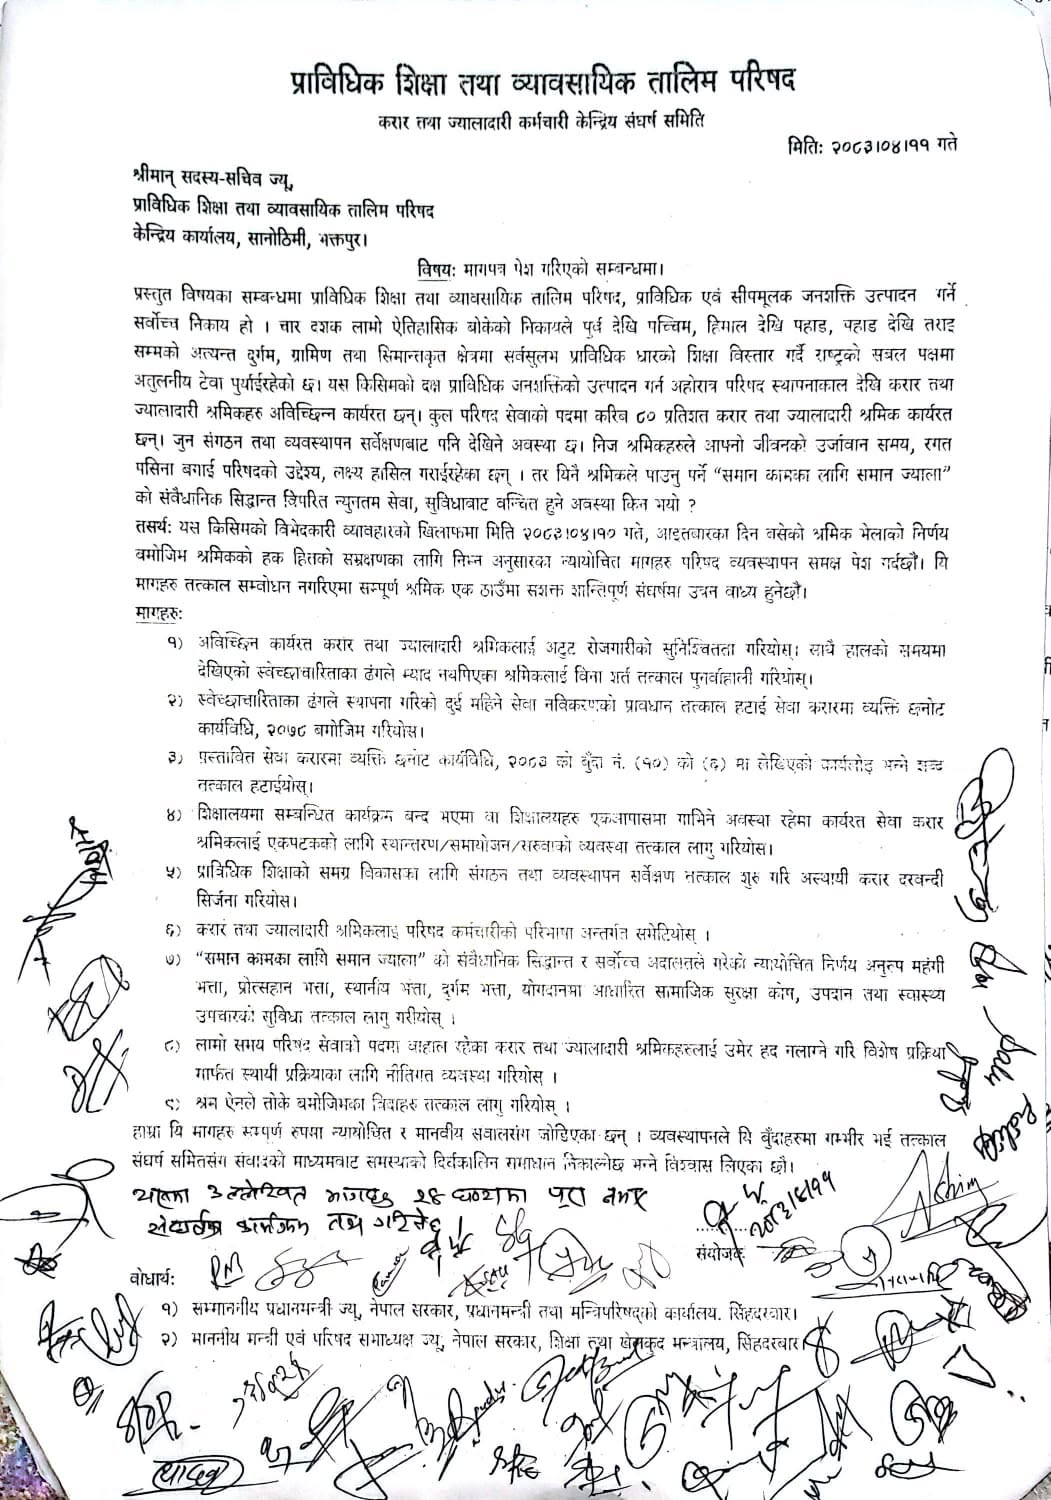 प्राविधिक शिक्षा तथा व्यावसायिक तालिम परिषद
करार तथा ज्यालादारी कर्मचारी केन्द्रिय संघर्ष समिति
मितिः २०८३।०४।११ गते
श्रीमान् सदस्य-सचिव ज्यू,
प्राविधिक शिक्षा तथा व्यावसायिक तालिम परिषद
केन्द्रिय कार्यालय, सानोठिमी, भक्तपुर।
विषयः मागपत्र पेश गरिएको सम्बन्धमा।
प्रस्तुत विषयका सम्बन्धमा प्राविधिक शिक्षा तथा व्यावसायिक तालिम परिषद, प्राविधिक एवं सीपमूलक जनशक्ति उत्पादन गर्ने
सर्वोच्च निकाय हो । चार दशक लामो ऐतिहासिक बोकेको निकायले पुर्व देखि पश्चिम, हिमाल देखि पहाड, पहाड देखि तराइ
सम्मको अत्यन्त दुर्गम, ग्रामिण तथा सिमान्तकृत क्षेत्रमा सर्वसुलभ प्राविधिक धारको शिक्षा विस्तार गर्दै राष्ट्रको सबल पक्षमा
अतुलनीय टेवा पुर्याईरहेको छ। यस किसिमको दक्ष प्राविधिक जनशक्तिको उत्पादन गर्न अहोरात्र परिषद स्थापनाकाल देखि करार तथा
ज्यालादारी श्रमिकहरु अविच्छिन्न कार्यरत छन्। कुल परिषद सेवाको पदमा करिब ८० प्रतिशत करार तथा ज्यालादारी श्रमिक कार्यरत
छन्। जुन संगठन तथा व्यवस्थापन सर्वेक्षणबाट पनि देखिने अवस्था छ। निज श्रमिकहरुले आफ्नो जीवनको उर्जावान समय, रगत
पसिना बगाई परिषदको उद्देश्य, लक्ष्य हासिल गराईरहेका छन् । तर यिनै श्रमिकले पाउनु पर्ने "समान कामका लागि समान ज्याला"
को संवैधानिक सिद्धान्त विपरित न्युनतम सेवा, सुविधाबाट वन्चित हुने अवस्था किन भयो ?
तसर्थः यस किसिमको विभेदकारी व्यावहारको खिलाफमा मिति २०८३।०४।१० गते, आइतबारका दिन बसेको श्रमिक भेलाको निर्णय
बमोजिम श्रमिकको हक हितको सम्रक्षणका लागि निम्न अनुसारका न्यायोचित मागहरु परिषद व्यवस्थापन समक्ष पेश गर्दछौं। यि
मागहरु तत्काल सम्बोधन नगरिएमा सम्पूर्ण श्रमिक एक ठाउँमा सशक्त शान्तिपूर्ण संघर्षमा उत्रन वाध्य हुनेछौं।
मागहरुः
१) अविच्छिन कार्यरत करार तथा ज्यालादारी श्रमिकलाई अटुट रोजगारीको सुनिश्चितता गरियोस्। साथै हालको समयमा
देखिएको स्वेच्छाचारिताका ढंगले म्याद नथपिएका श्रमिकलाई विना शर्त तत्काल पुनर्वाहाली गरियोस्।
२) स्वेच्छाचारिताका ढंगले स्थापना गरिको दुई महिने सेवा नविकरणको प्रावधान तत्काल हटाई सेवा करारमा व्यक्ति छनोट
कार्यविधि, २०७८ बमोजिम गरियोस।
३) प्रस्तावित सेवा करारमा व्यक्ति छनोट कार्यविधि, २०८३ को बुँदा नं. (१०) को (६) मा लेखिएको कार्यबोझ भन्ने शब्द
तत्काल हटाईयोस्।
४) शिक्षालयमा सम्बन्धित कार्यक्रम बन्द भएमा वा शिक्षालयहरु एकआपासमा गाभिने अवस्था रहेमा कार्यरत सेवा करार
श्रमिकलाई एकपटकको लागि स्थान्तरण/समायोजन/सरुवाको व्यवस्था तत्काल लागु गरियोस।
५) प्राविधिक शिक्षाको समग्र विकासका लागि संगठन तथा व्यवस्थापन सर्वेक्षण तत्काल शुरु गरि अस्थायी करार दरवन्दी
सिर्जना गरियोस।
६) करार तथा ज्यालादारी श्रमिकलाइ परिषद कर्मचारीको परिभाषा अन्तर्गत समेटियोस् ।
७) "समान कामका लागि समान ज्याला" को संवैधानिक सिद्धान्त र सर्वोच्च अदालतले गरेको न्यायोचित निर्णय अनुरुप महंगी
भत्ता, प्रोत्सहान भत्ता, स्थानीय भत्ता, दुर्गम भत्ता, योगदानमा आधारित सामाजिक सुरक्षा कोष, उपदान तथा स्वास्थ्य
उपचारको सुविधा तत्काल लागु गरीयोस् ।
८) लामो समय परिषद सेवाको पदमा बाहाल रहेका करार तथा ज्यालादारी श्रमिकहरुलाई उमेर हद नलाग्ने गरि विशेष प्रक्रिया
मार्फत स्थायी प्रक्रियाका लागि नीतिगत व्यवस्था गरियोस् ।
९) श्रम ऐनले तोके बमोजिमका विदाहरु तत्काल लागु गरियोस् ।
हाम्रा यि मागहरु सम्पूर्ण रुपमा न्यायोचित र मानवीय सवालसंग जोडिएका छन् । व्यवस्थापनले यि बुँदाहरुमा गम्भीर भई तत्काल
संघर्ष समितिसंग संवादको माध्यमबाट समस्याको दिर्घकालिन समाधान निकाल्नेछ भन्ने विश्वास लिएका छौं।
उल्लेखित २४ घण्टामा पुरा नभए
संघर्षका कार्यक्रम तय गरिनेछ
२०८३।४।११
संयोजक
वोधार्थः
१) सम्माननीय प्रधानमन्त्री ज्यू, नेपाल सरकार, प्रधानमन्त्री तथा मन्त्रिपरिषद्को कार्यालय. सिंहदरबार।
२) माननीय मन्त्री एवं परिषद सभाध्यक्ष ज्यू, नेपाल सरकार, शिक्षा तथा खेलकुद मन्त्रालय, सिंहदरबार।